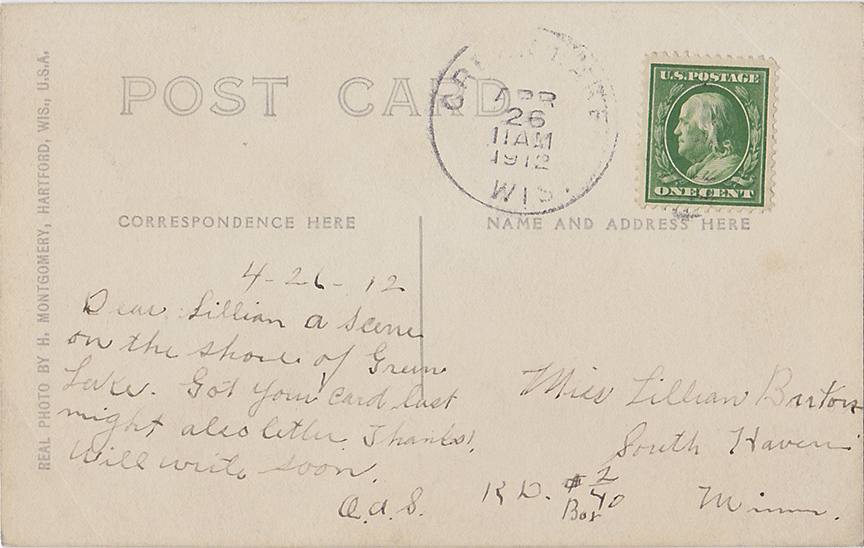 REAL PHOTO BY H. MONTGOMERY, HARTFORD, WIS., U.S.A.
POST CARD
GREEN LAKE
APR
26
11AM
1912
WIS.
U.S.POSTAGE
ONE CENT
CORRESPONDENCE HERE
NAME AND ADDRESS HERE
4-26-12
Dear Lillian a scene
on the shore of Green
Lake. Got your card last
night also letter Thanks!
Will write soon.
A.A.S.
Miss Lillian Burton
South Haven
R.D. #2
Box 40
Minn.